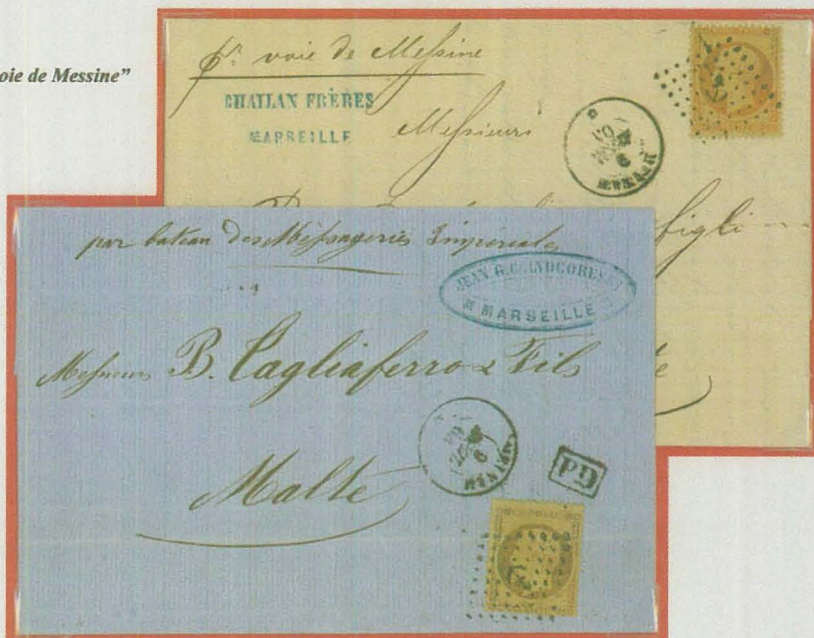 oie de Messine"
pr voie de Messine
CHAILAN FRÈRES
MARSEILLE
Messieurs
figli
par bateau des Messageries Imperiales
JEAN G.
MARSEILLE
Messieurs B. Tagliaferro & Fils
Malte
PD